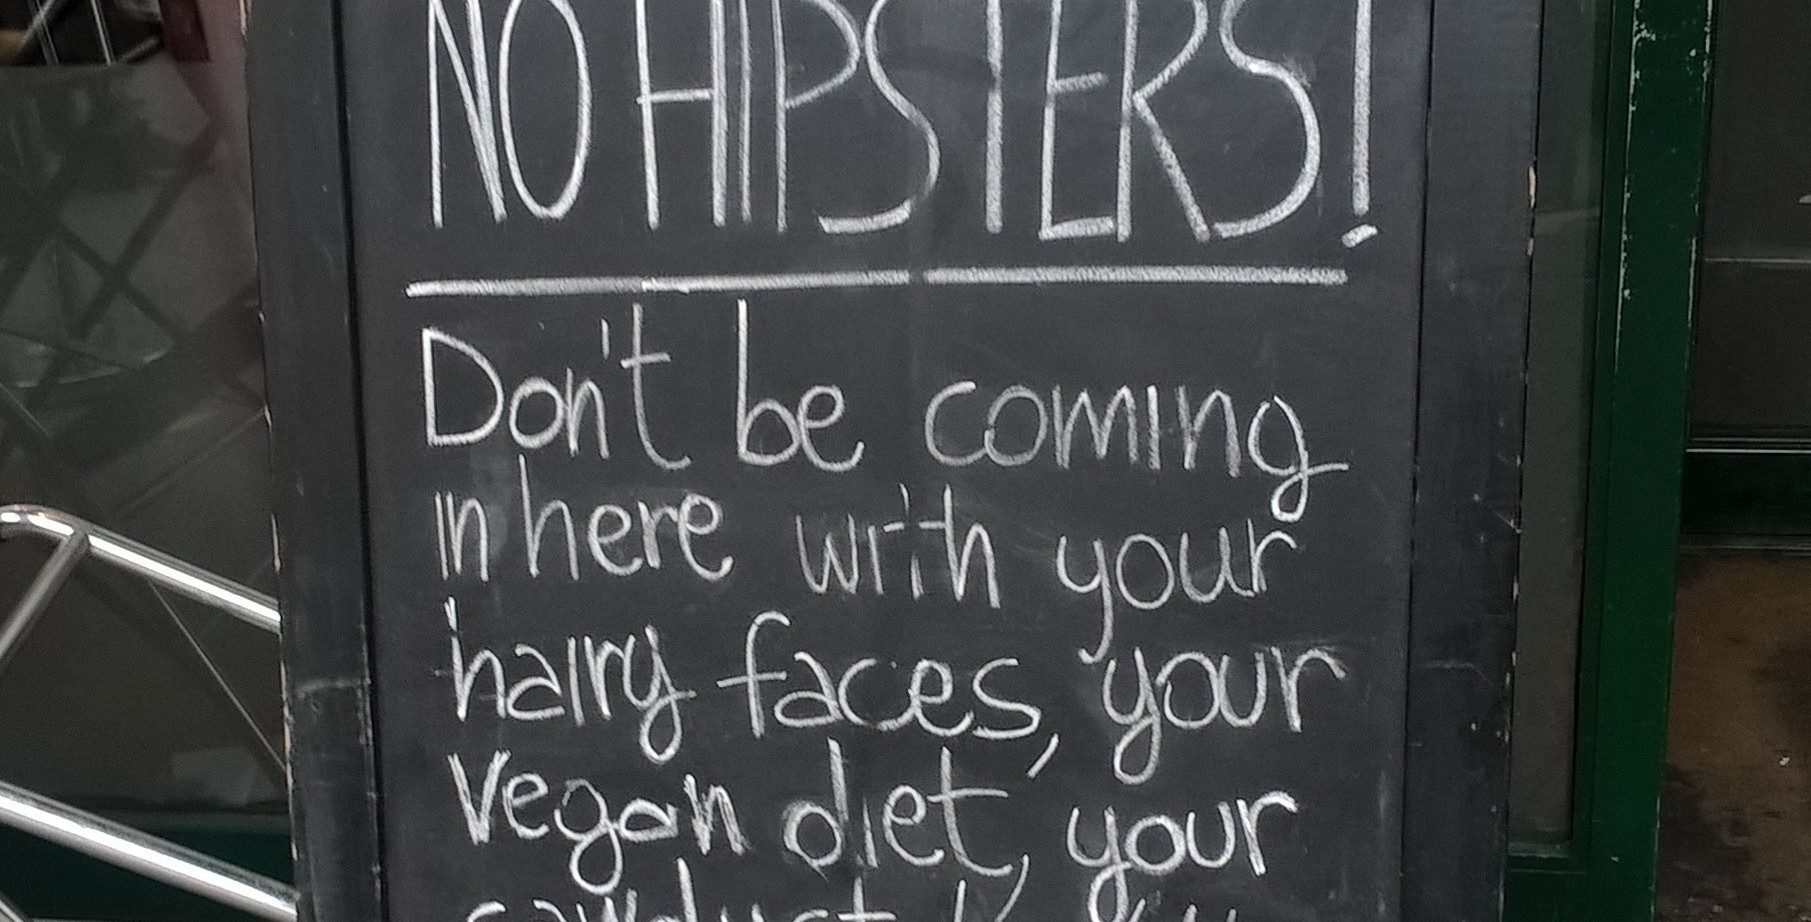 NO HIPSTERS!
Don't be coming
in here with your
hairy faces, your
vegan diet, your